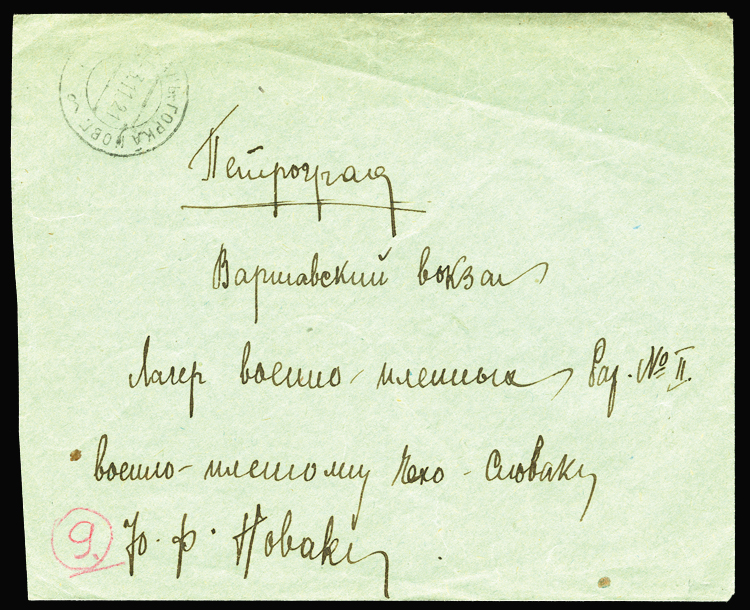 ГОРКА НОВГ.
.11.21
Петроград
Варшавский вокзал
Лагер военно-пленных Бар. № II.
военно-пленному Чехо-Словаку
Ю. Ф. Новаку
9.